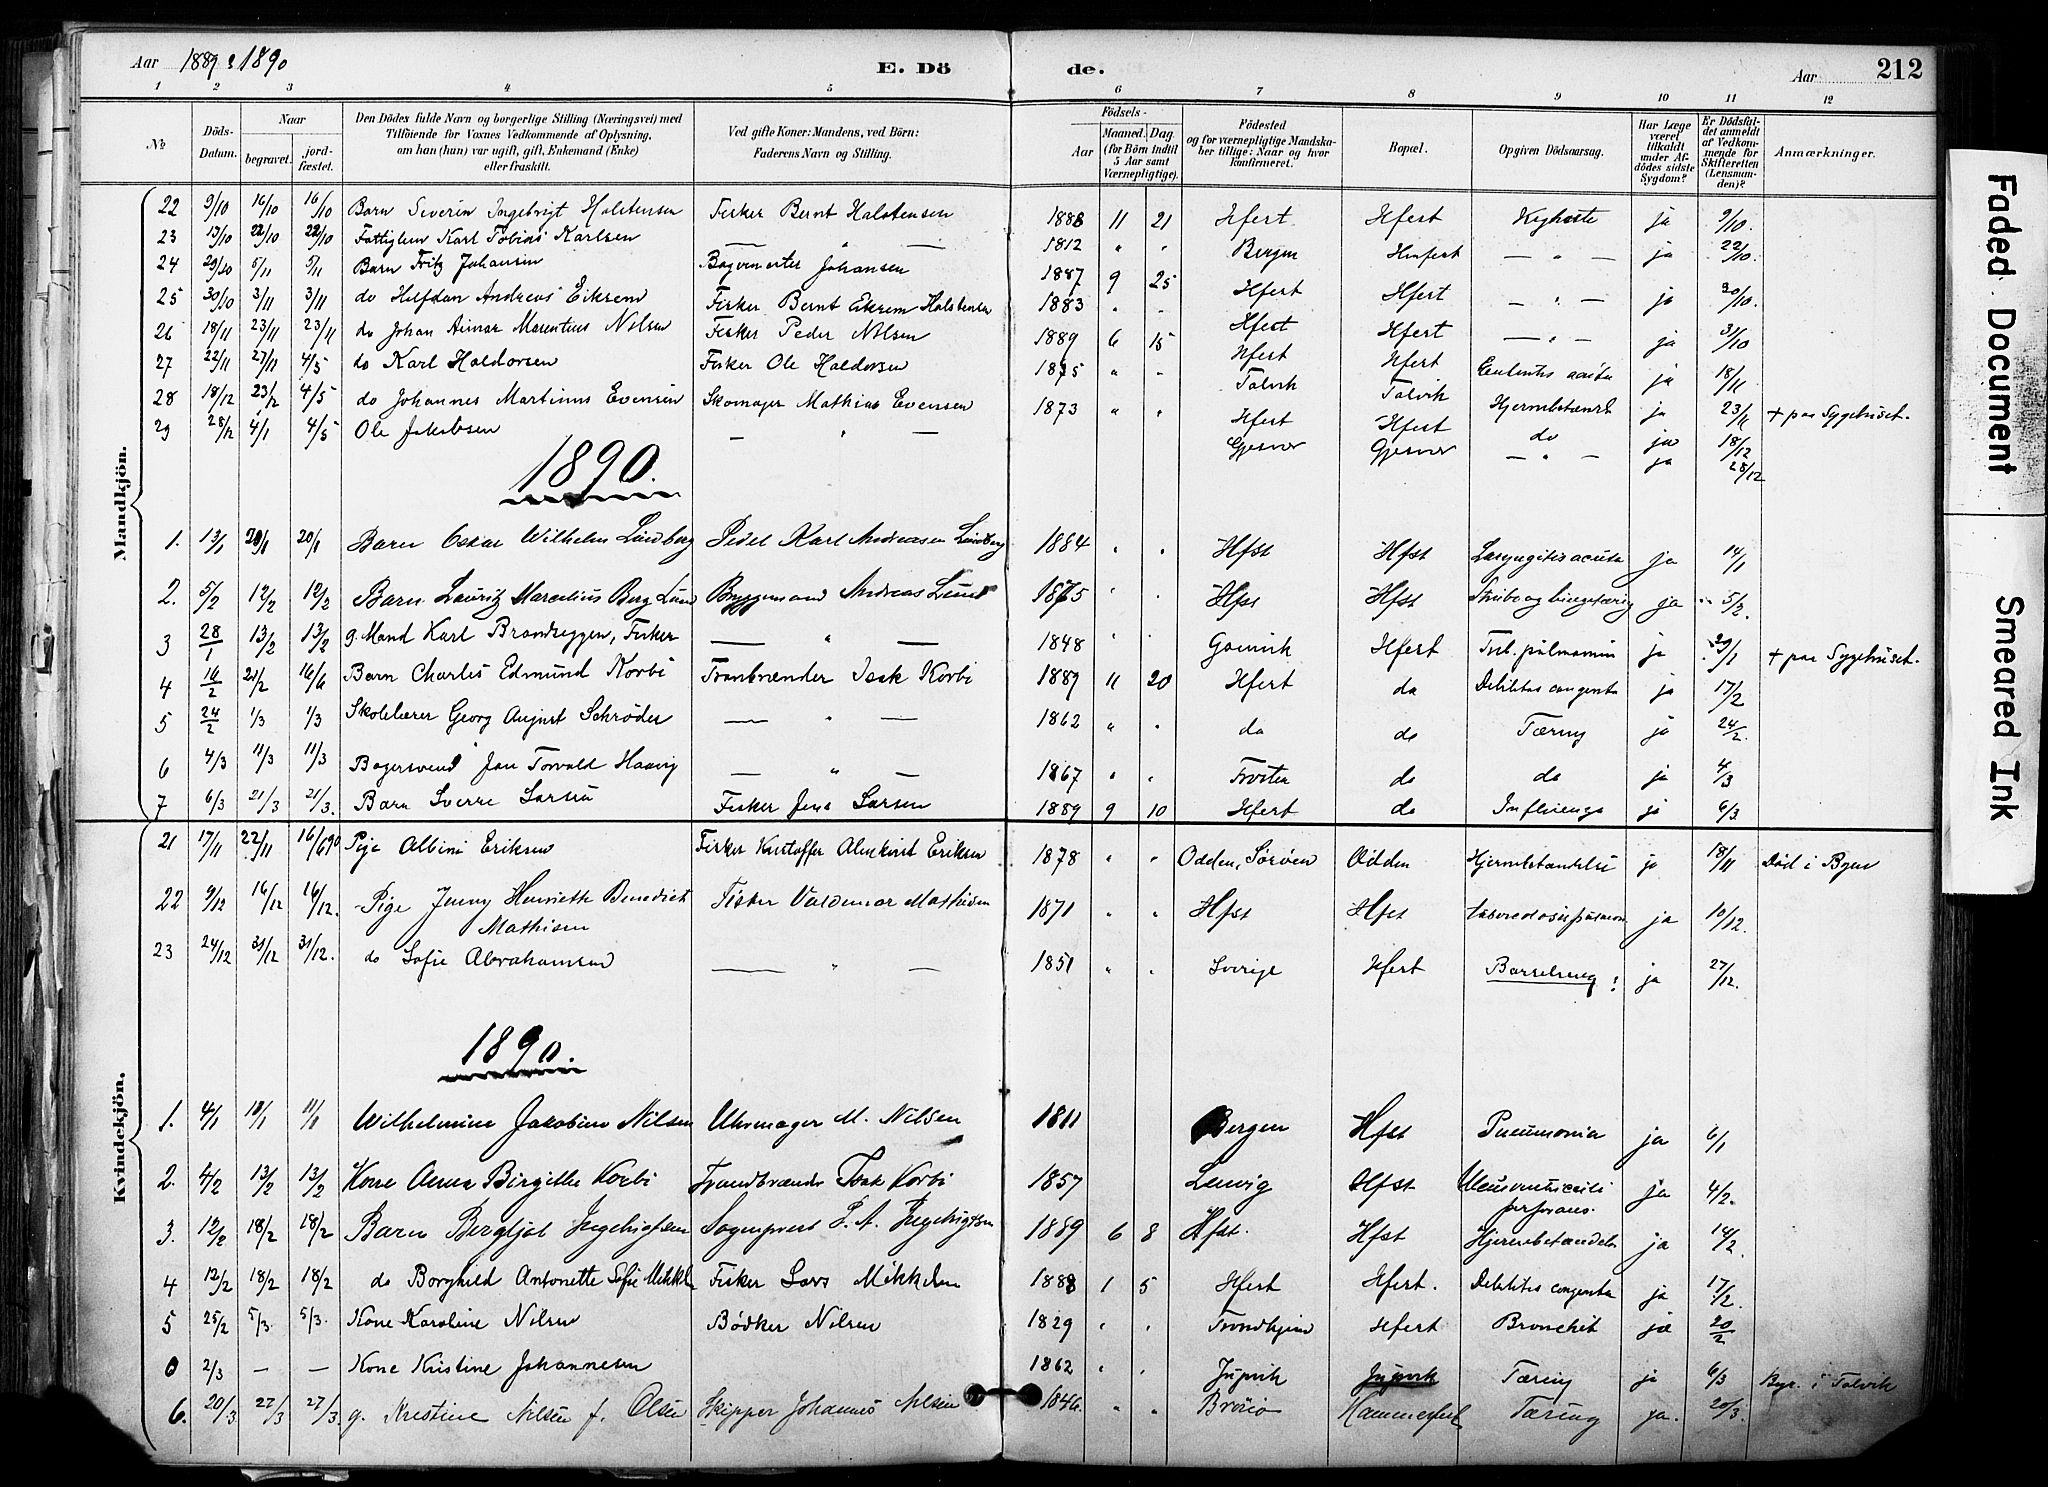 Aar 1889 & 1890
E. Dö
de.
Aar
212
1 2 3 4 5 6 7 8 9 10 11 12
№
Döds-Datum.
Naar
begravet.
jordfæstet.
Den Dödes fulde Navn og borgerlige Stilling (Næringsvei) med
Tilföiende for Voxnes Vedkommende af Oplysning,
om han (hun) var ugift, gift, Enkemand (Enke)
eller fraskilt.
Ved gifte Koner: Mandens, ved Börn:
Faderens Navn og Stilling.
Födsels-
Aar
Maaned. Dag.
(for Börn indtil
5 Aar samt
Værnepligtige).
Födested
og for værnepligtige Mandskaber tillige: Naar og hvor
konfirmeret.
Bopæl.
Opgiven Dödsaarsag.
Har Læge
været
tilkaldt
under Afdödes sidste
Sygdom?
Er Dödsfaldet anmeldt
af Vedkommende for
Skifteretten
(Lensmanden)?
Anmærkninger.
Mandkjön.
22 9/10 16/10 16/10 Barn Severin Ingebrigt Halstensen Fisker Bernt Halstensen 1888 11 21 Hfest Hfest Kighoste ja 9/10.
23 13/10 22/10 22/10 Fattiglem Karl Tobias Karlsen — " — 1812 " " Bergen Hmfest — " — ja 22/10.
24 29/10 5/11 5/11 Barn Fritz Johansen Johansen 1887 9 25 Hfest Hfest — " — ja 30/10.
25 30/10 3/11 3/11 do Halfdan Andreas Eikrem Fisker Bernt Eikrem Halstensen 1883 " " Hfest Hfest — " — ja 31/10
26 18/11 23/11 23/11 do Johan Marentius Nilsen Fisker Peder Nilsen 1889 6 15 Hfest Hfest acuta ja 18/11
27 22/11 27/11 4/5 do Karl Haldorsen Fisker Ole Haldorsen 1875 " " Talvik Talvik ja 23/11 + paa Sygehuset.
28 18/12 23/12 4/5 do Johannes Martinus Evensen Skomager Mathias Evensen 1873 " " Hfest Hfest do ja 18/12
29 28/12 4/1 4/5 Ole Jakobsen — " — Gjesvær Gjesvær — " — ja 28/12
1890.
1. 13/1 20/1 20/1 Barn Oskar Wilhelm Lundberg Pedel Karl Andreasen Lundberg 1884 " " Hfst Hfst Laryngitis acuta ja 14/1
2. 5/2 12/2 12/2 Barn Lauritz Marcelius Berg Lund Bryggemand Andreas Lund 1875 " " Hfst Hfst ja 5/2.
3 28/1 13/2 13/2 g. Mand Karl Brandseggen, Fisker — " — 1848 " " Gamvik Hfest Tub. pulmonum ja 29/1 + paa Sygehuset.
4 16/2 21/2 16/6 Barn Charles Edmund Korbi Tranbrænder Isak Korbi 1889 11 20 Hfest do Debilitas congenita ja 17/2
5 24/2 1/3 1/3 Skolelærer Georg August Schrøder — " — 1862 " " do do Tæring ja 24/2.
6 4/3 11/3 11/3 Bagersvend Jon Torvald Haavig — " — 1867 " " do do ja 4/3
7 6/3 21/3 21/3. Barn Sverre Larsen Fisker Jens Larsen 1889 9 10 Hfest do Influenza ja 6/3
Kvindekjön.
21 17/11 22/11 16/6 90 Pige Albine Eriksen Fisker Kristoffer Almkvist Eriksen 1878 " " Odden, Sørøen Odden Hjernebetændelse ja 18/11 Død i Byen
22 9/12 16/12 16/12. Pige Jenny Henriette Benedict Fisker Valdemar Mathisen 1871 " " Hfst Hfst ja 10/12.
Mathisen
23 24/12 31/12 31/12. do Sofie Abrahamsen — " — 1851 " " Sverige Hfest Barselseng! ja 27/12.
1890.
1. 4/1 11/1 11/1 Wilhelmine Jakobine Nilsen Uhrmager M. Nilsen 1811 Bergen Hfst Pneumonia ja 6/1
2. 4/2 13/2 13/2 Kone Anna Birgitte Korbi Trandbrænder Isak Korbi 1857 Hfst ja 4/2.
perforans.
3. 12/2 18/2 18/2 Barn Bergljot Ingebrigtsen Sogneprest E. A. Ingebrigtsen 1889 6 8 Hfst. Hfst Hjernebetændelse ja 14/2
4 12/2 18/2 18/2 do Borghild Antonette Sofie Mikkelsen Fisker Lars Mikkelsen 1888 1 5 Hfest Hfest. Debilitas congenita ja 17/2.
5 25/2 5/3. 5/3. Kone Karoline Nilsen Bødker Nilsen 1829 " " Trondhjem Hfest Bronchit ja 20/2
0 2/3 — — Kone Kristine Johannesen 1862 " " Jupvik Jupvik Tæring ja 6/3 Bgr. i Talvik
6. 20/3 27/3 27/3. g. Kristine Nilsen f. Olsen Skipper Johannes Nilsen 1846. " " Hammerfest Tæring ja. 20/3.
Faded Document
Smeared Ink